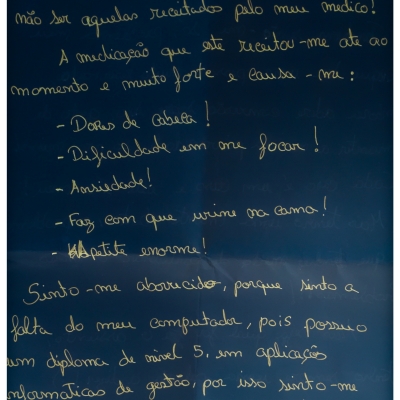 não ser aquelas receitados pelo meu medico!
A medicação que este receitou-me ate ao
momento e muito forte e causa-me:
- Dores de cabeca!
- Dificuldade em me focar!
- Ansiedade!
- Faz com que urine na cama!
- Apetite enorme!
Sinto-me aborrecido, porque sinto a
falta do meu computador, pois possuo
um diploma de nivel 5, em aplicações
informaticas de gestão, por isso sinto-me